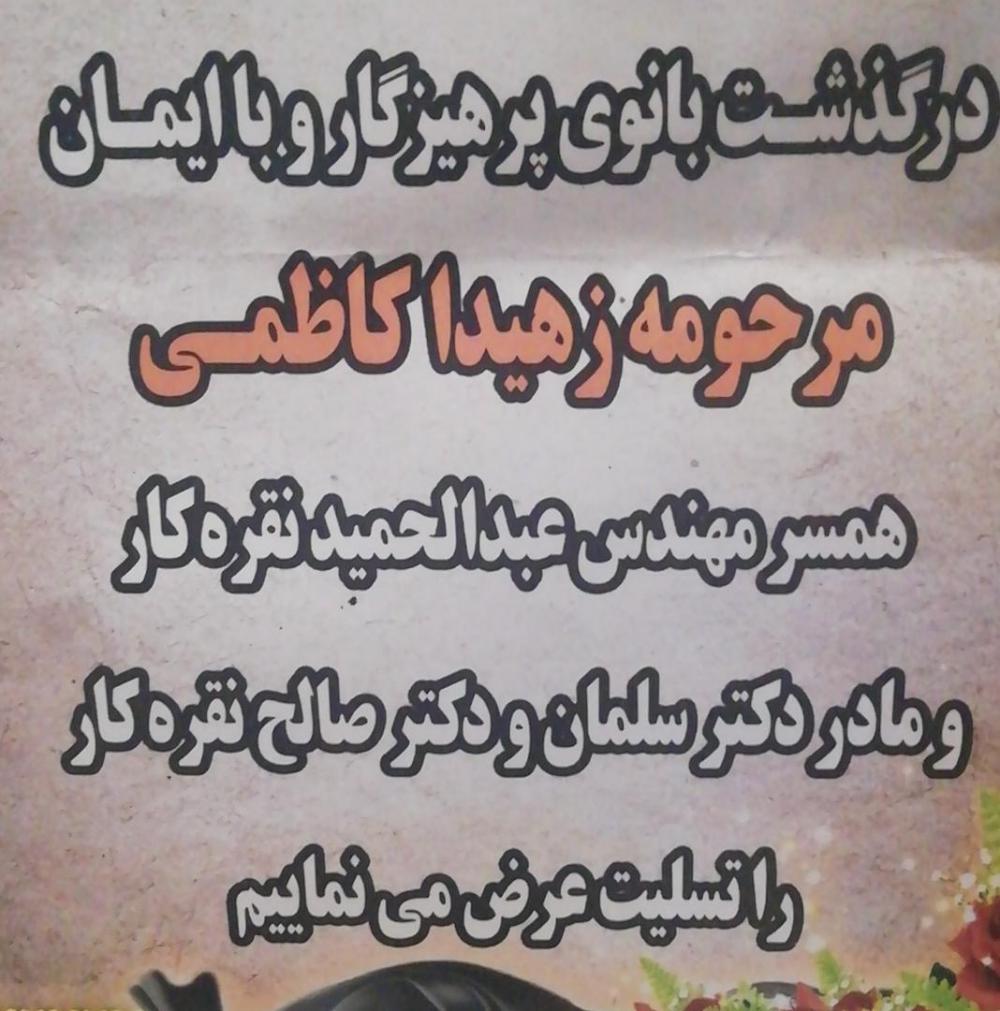 درگذشت بانوی پرهیزگار و با ایمان
مرحومه زهیدا کاظمی
همسر مهندس عبدالحمید نقره کار
و مادر دکتر سلمان و دکتر صالح نقره کار
را تسلیت عرض می نماییم